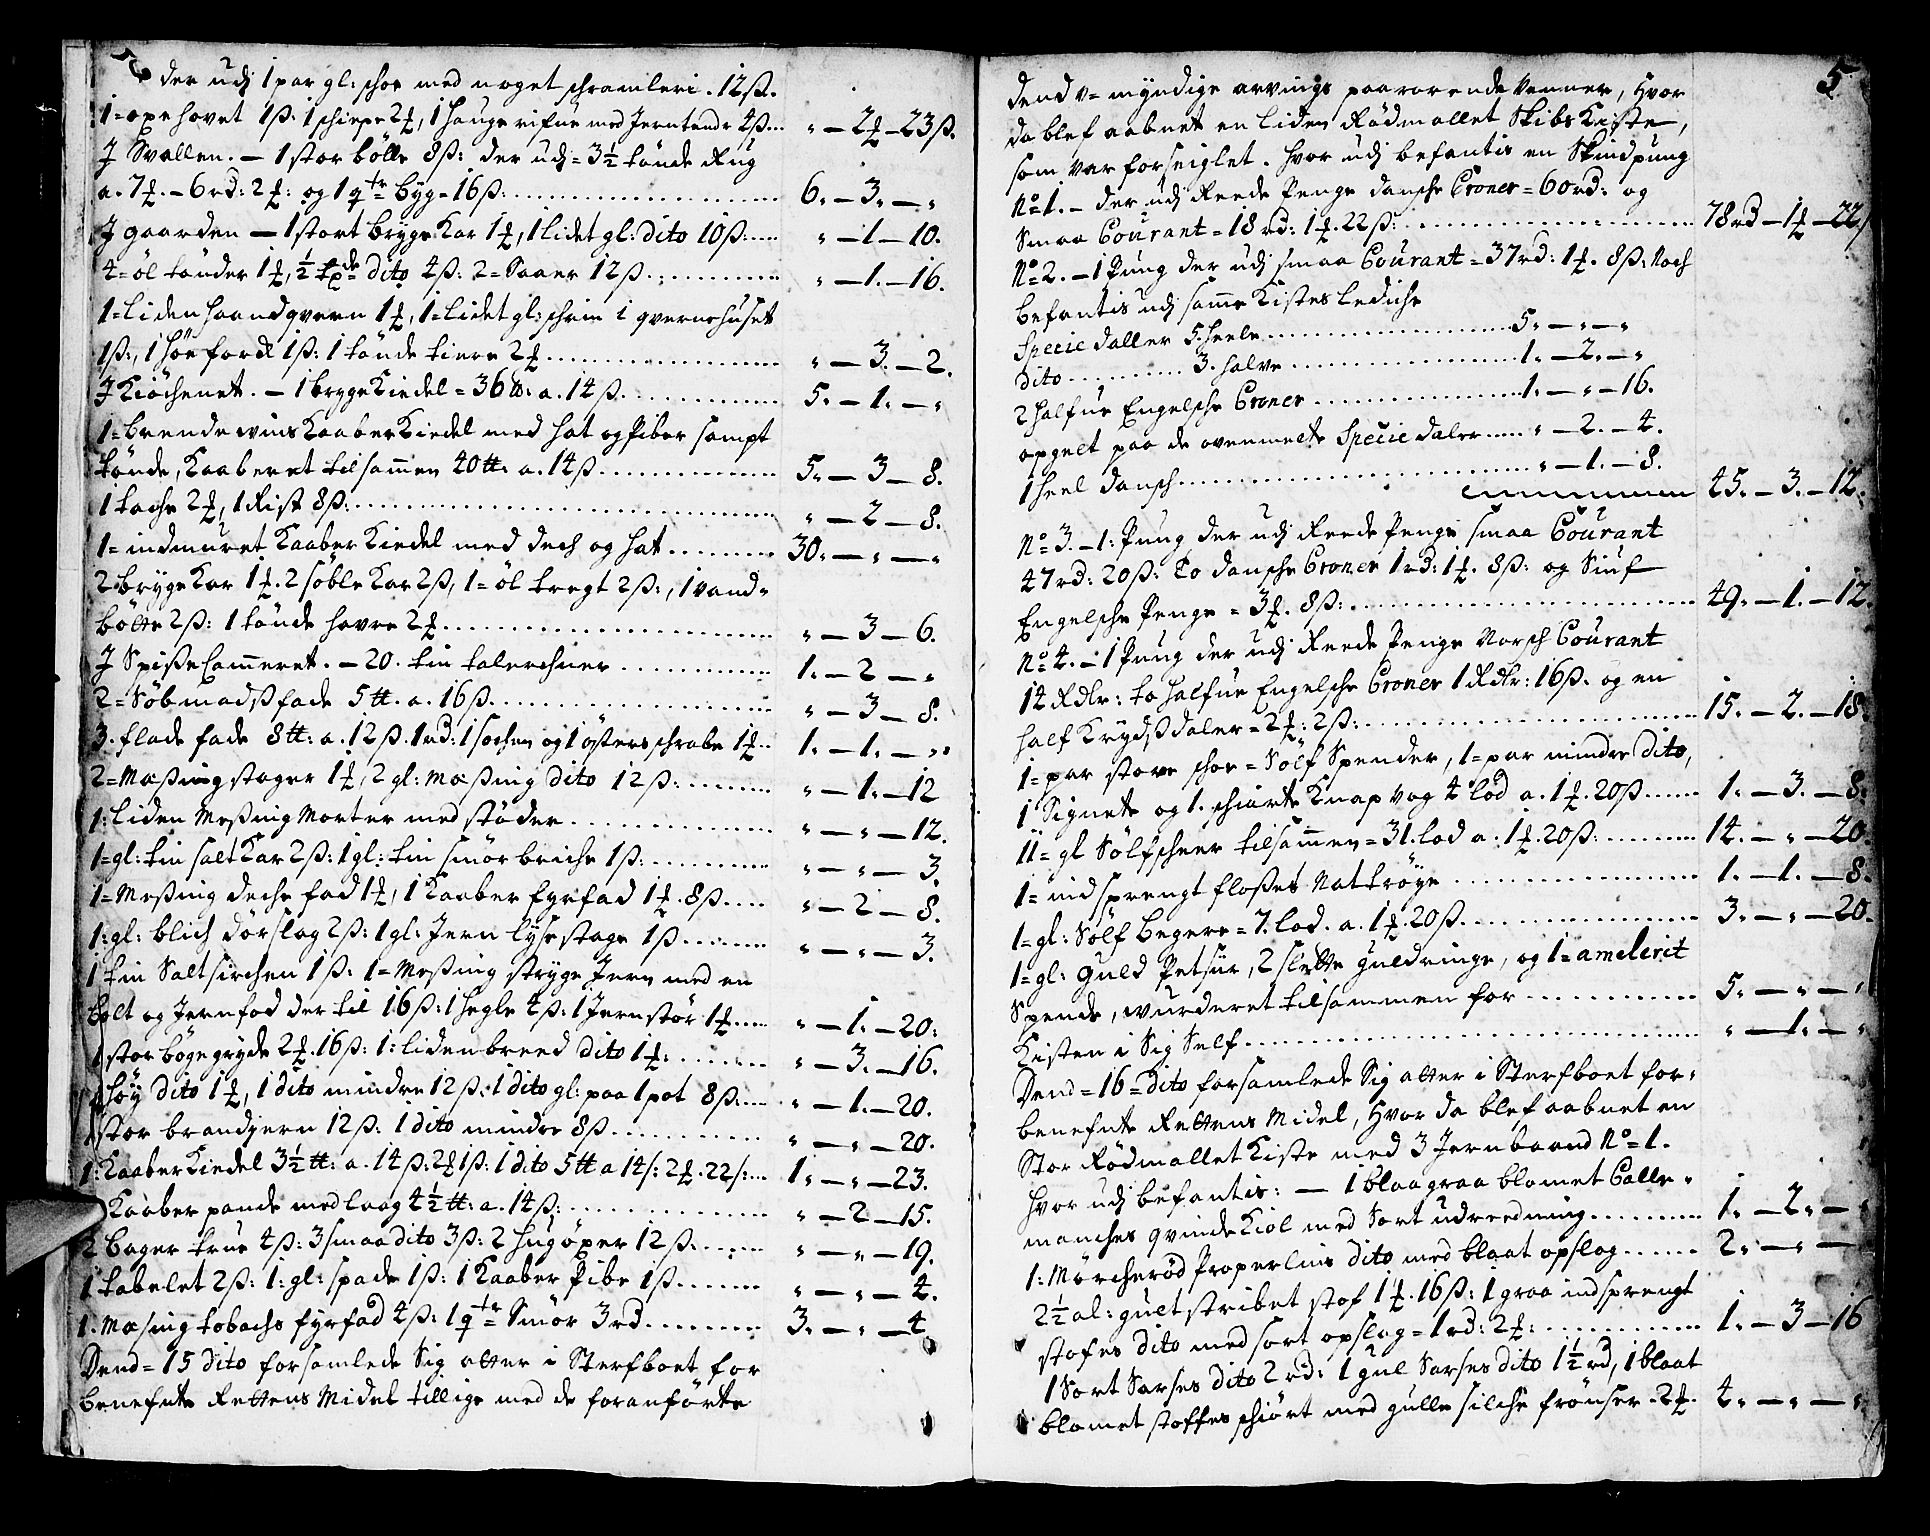 der udj 1 par gl: schoe med noget schramleri. 12ß.
1=øxehovet 1ß: 1 schiepe 2₰, 1 hauge rifue med Jerntende 4ß... " — 2₰ — 23ß.
J Svallen. — 1 stor bölle 8ß: der udj = 3½ tönde Rug
a. 7₰. — 6rd: 2₰: og 1 qtr byg = 16ß: 6. — 3. — "
J gaarden — 1 stort brygekar 1₰, 1 lidet gl: dito 10ß: " — 1 — 10.
4=öl tönder 1₰, ½ dito 4ß: 2=Saaer 12ß " — 1. — 16.
1=liden haandqvern 1₰, 1=lidet gl: schrin i qvernehuset
1ß:, 1 höe fork 1ß: 1 tönde tiere 2₰ " — 3. — 2.
J Kiöchenet. — 1 bryge Kiedel = 36 ℔: a. 14ß. 5. — 1. — "
1=brendewins Kaaber Kiedel med hat og Piber sampt
tönde, Kaaberet tilsammen 40℔: a. 14ß 5. — 3 — 8.
1 tache 2₰, 1 Rist 8ß: " — 2 — 8.
1=indmuret Kaaber Kiedel med dech og hat 30. — " — "
2 bryge Kar 1₰. 2 söble Kar 2ß, 1=öl tregt 2ß:, 1 vand=
bötte 2ß: 1 tönde havre 2₰ " — 3 — 6.
J Spiße Cammeret. — 20. tin talerchner 1. — 2 — "
2=Söbmadßfade 5℔. a. 16ß. " — 3 — 8.
3. flade fade 8℔: a. 12ß. 1rd: 1 sochen og 1 östers schrabe 1₰.. 1. — 1. — "
2=Meßingstager 1₰, 2 gl: Meßing dito 12ß: " — 1. — 12
1: liden Meßing Morter med stöder " — " — 12.
1=gl: tin salt Kar 2ß: 1 gl: tin smör briche 1ß: " — " — 3.
1=Meßing deche fad 1₰, 1 Kaaber fyrfad 1₰. 8ß " — 2 — 8.
1: gl: blich dörslag 2ß: 1 gl: Jern lysestage 1ß " — " — 3.
1 tin Saltsirchen 1ß: 1=Meßing stryge Jern med en
bolt og Jernfod der til 16ß: 1 hegle 4ß: 1 Jernstör 1₰ " — 1. — 20:
1 stor böge gryde 2₰. 16ß: 1: liden breed dito 1₰: " — 3. — 16.
1 höy dito 1₰, 1 dito mindre 12ß: 1 dito gl: paa 1 pot 8ß: " — 1. — 20.
1 stor brandjern 12ß: 1 dito mindre 8ß " — " — 20.
1: Kaaber Kiedel 3½℔: a. 14ß: 2₰ 1ß: 1 dito 5℔ a 14/: 2₰. 22/: 1. — " — 23.
Kaaber pande med laag 4½℔: a. 14ß: " — 2 — 15.
2 bager true 4ß: 3 smaa dito 3ß: 2 hugöxer 12ß. " — " — 19.
1 tabelet 2ß: 1: gl: spade 1ß: 1 Kaaber Pibe 1ß " — " — 4.
1. Mesing tobachs fyrfad 4ß: 1 qtr Smör 3rd 3. — " — 4
Dend = 15 dito forsamlede Sig atter i Sterfboet for
benefnte Rettens Midel tillige med de foranförte
5
dend u=myndige arvings paarørende Venner, hvor
da blef aabnet en liden Rödmallet Skibs Kiste,
som var forseiglet. hvor udj befantis en Skindpung
No=1. — der udj Reede Penge dansche Croner = 60rd: og
Smaa Courant = 18rd: 1₰. 22ß: 78rd — 1₰ — 22/
No=2. — 1 Pung der udj smaa Courant = 37rd: 1₰. 8ß: Noch
befantis udj samme Kistes lediche
Specie daller 5. heele 5. — " — "
dito 3. halve 1. — 2. — "
2 halfue Engelsche Croner 1. — " — 16.
opgelt paa de ovenmelte Specie daler " — 2. — 4.
1 heel dansch " — 1. — 8. 45. — 3. — 12.
No=3. — 1: Pung der udj Reede Penge smaa Courant
47rd: 20ß: To dansche Croner 1rd: 1₰. 8ß: og Siuf
Engelsche Penge = 3₰. 8ß: 49. — 1. — 12.
No=4. — 1 Pung der udj Reede Penge Norsch Courant
14 Rdlr: to halfue Engelsche Croner 1 Rdlr: 16ß. og en
half Krydßdaler = 2₰: 2ß: 15. — 2. — 18.
1=par store schoe = Sölf Spender, 1=par mindre dito,
1 Signete og 1. schiorte Knap vog 4 lod a. 1₰. 20ß 1. — 3. — 8.
11=gl Sölfscheer tilsammen = 31. lod a. 1₰. 20ß: 14. — " — 20.
1=indsprengt floßes Nattröye 1. — 1. — 8.
1=gl: Sölf Begere = 7. lod. a. 1₰. 20ß. 3. — " — 20.
1=gl: Guld Petsiir, 2 slette guldringe, og 1=amelerit
Spende, wurderet tilsammen for 5. — " — "
Kisten i Sig Self " — 1. — "
Dend = 16 = dito forsamlede Sig atter i Sterfboet for=
benefnte Rettens Midel, hvor da blef aabnet en
Stor Rödmallet Kiste med 3 Jernbaand No=1.
hvor udj befantis: — 1 blaagraa blomet Calle=
manches qvinde Kiol med Sort udreedning 1. — 2. — "
1: Mørcherød Properlins dito med blaat opslag 2. — " — "
2½ al: gult stribet stof 1₰. 16ß: 1 graa indsprengt
stofes dito med sort opslag = 1rd: 2₰: 1. — 3 — 16
1 Sort Sarses dito 2rd: 1 gul Sarses dito 1½rd, 1 blaat
blomet stoffes schiört med gulle silche frönser. 2₰. 4. — " — "